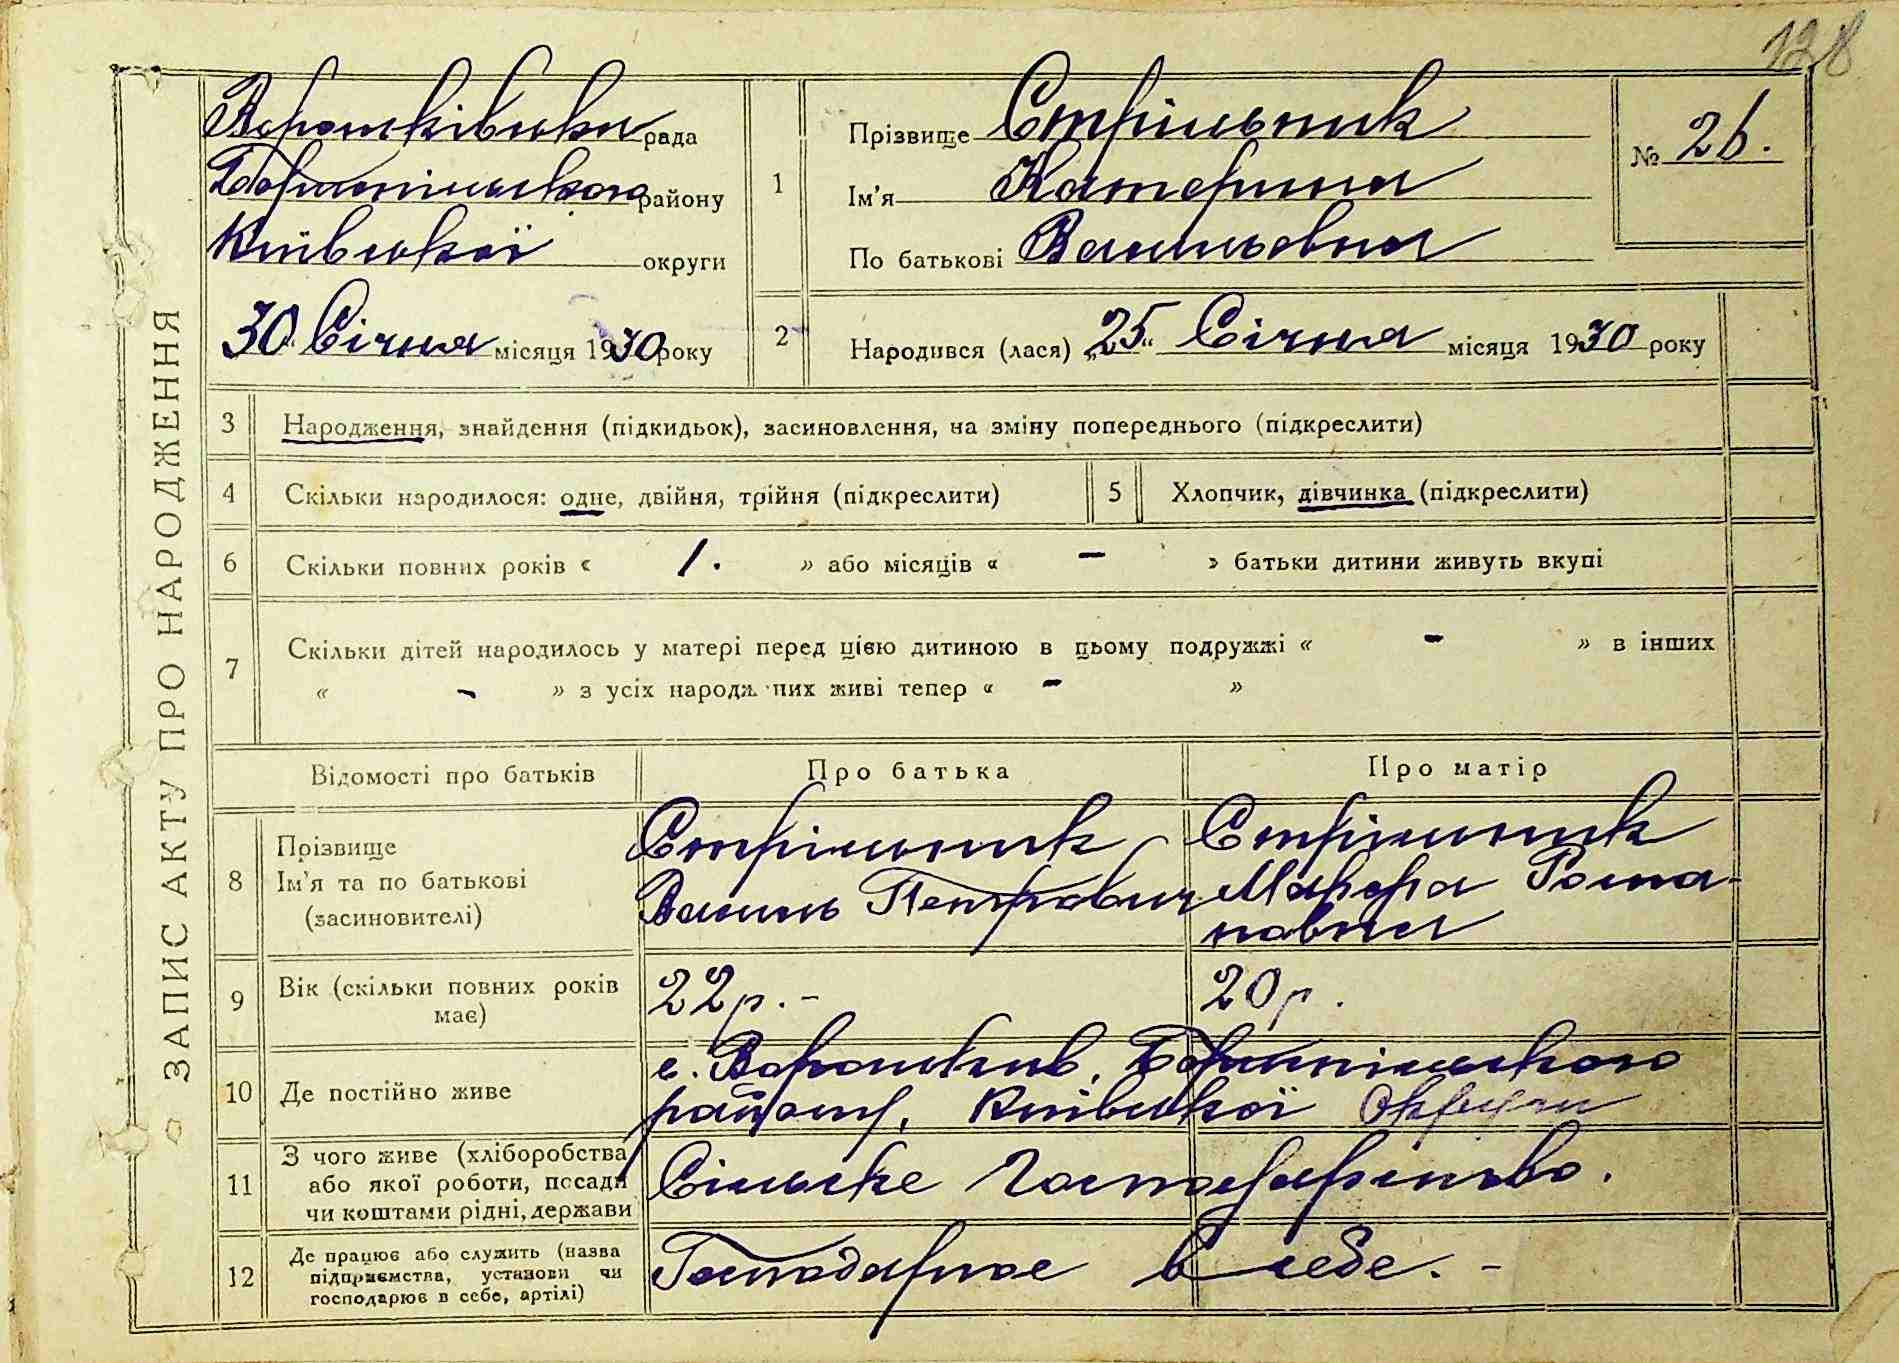 128
ЗАПИС АКТУ ПРО НАРОДЖЕННЯ
Вороньківська рада
Бориспільського району
Київської округи
30 Січня місяця 1930 року
1
Прізвище Стрільник
Ім'я Катерина
По батькові Васильевна
№ 26.
2
Народився (лася) „25“ Січня місяця 1930 року
3 Народження, знайдення (підкидьок), засиновлення, на зміну попереднього (підкреслити)
4 Скільки народилося: одне, двійня, трійня (підкреслити)
5 Хлопчик, дівчинка (підкреслити)
6 Скільки повних років « 1. » або місяців « - » батьки дитини живуть вкупі
7 Скільки дітей народилось у матері перед цією дитиною в цьому подружжі « - » в інших
« - » з усіх народж них живі тепер « - »
Відомості про батьків Про батька Про матір
8 Прізвище
Ім'я та по батькові
(засиновителі)
Стрільник
Василь Петрович
Стрільник
Романовна
9 Вік (скільки повних років
має)
22 р. -
20 р.
10 Де постійно живе
с. Вороньків, Бориспільського
району, Київської Округи
11 З чого живе (хліборобства
або якої роботи, посади
чи коштами рідні, держави
Сільське Господарство.
12 Де працює або служить (назва
підприємства, установи чи
господарює в себе, артілі)
Господарює в себе. -